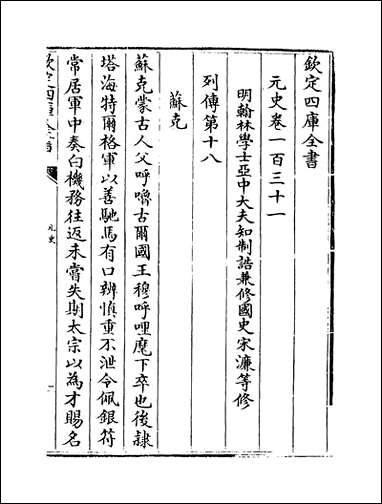 欽定四庫全書
元史卷一百三十一
明翰林學士亞中大夫知制誥兼修國史宋濂等修
列傳第十八
蘇克
蘇克蒙古人父呼嚕古爾國王穆呼哩麾下卒也後隷
塔海特爾格軍以善馳馬有口辨慎重不泄令佩銀符
常居軍中奏白機務往返未嘗失期太宗以為才賜名
欽定四庫全書
元史
一